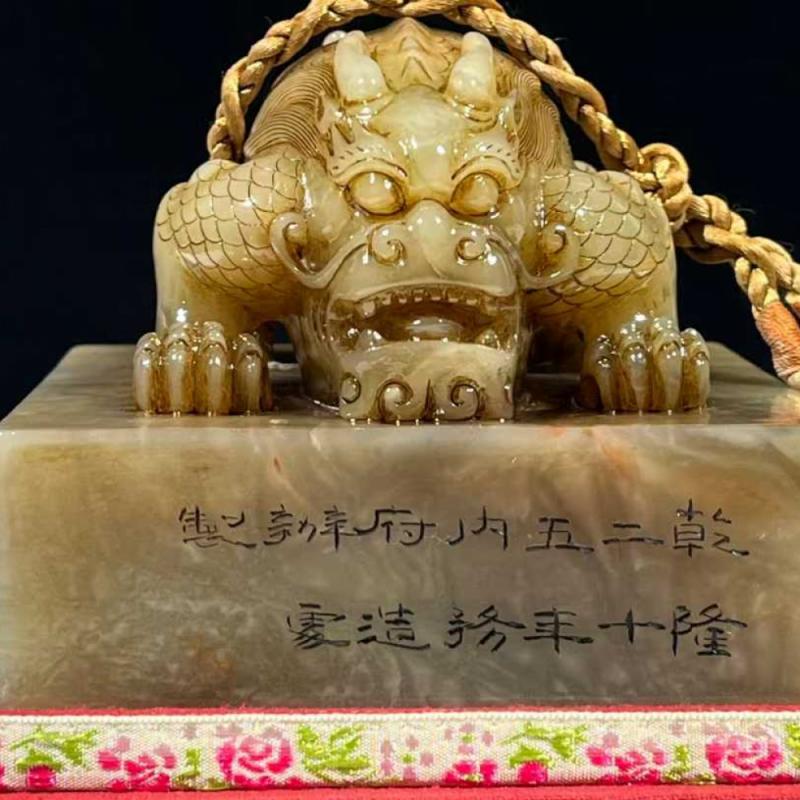 乾隆
二十
五年
内務
府造
辦處
製